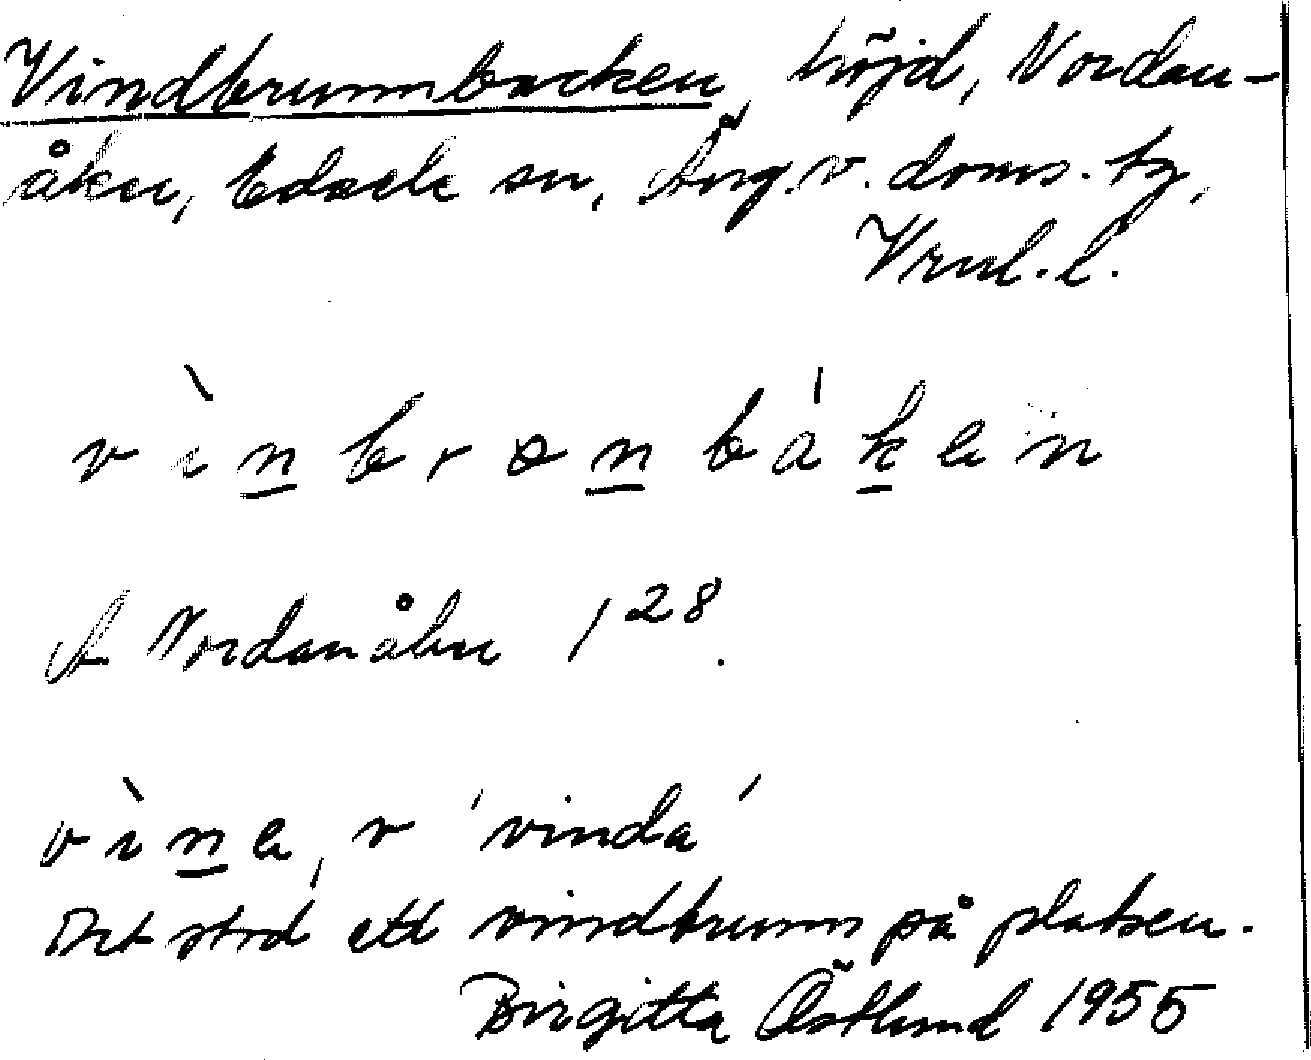 Vindbrunnbacken, höjd, Nordan-
åker, Edsele sn, Ång.v. doms. tg,
Vrnl. l.
v ì n b r ɷ n b á k e n
A Nordanåker 1 28.
v ì n e, v 'vinda'
Det stod ett vindbrunn på platsen.
Birgitta Östlund 1955